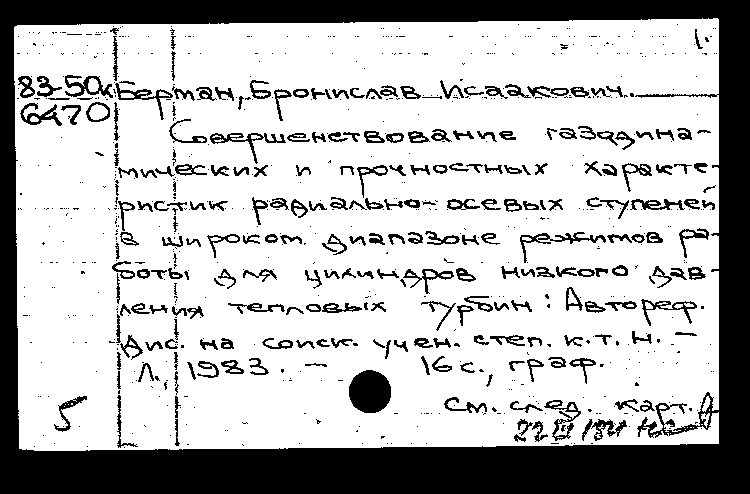 1.
83-50к Берман, Бронислав Исаакович.
6470
Совершенствование газодина-
мических и прочностных характе-
ристик радиально-осевых ступеней
в широком диапазоне режимов ра-
боты для цилиндров низкого дав-
ления тепловых турбин: Автореф.
Дис. на соиск. учен. степ. к.т.н. -
Л., 1983. - 16 с., граф.
См. след. карт.
5